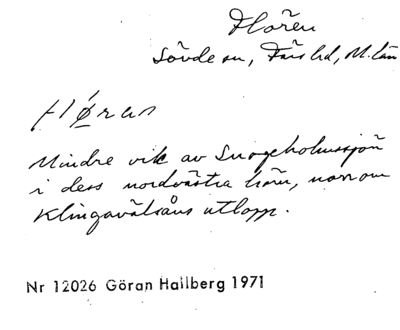 Hören
Sövde sn, Färs hd, M. län
Hǿrɘn
Mindre vik av Snogeholmssjön
i dess nordvästra hörn, norr om
Klingavälsåns utlopp.
Nr 12026 Göran Hallberg 1971